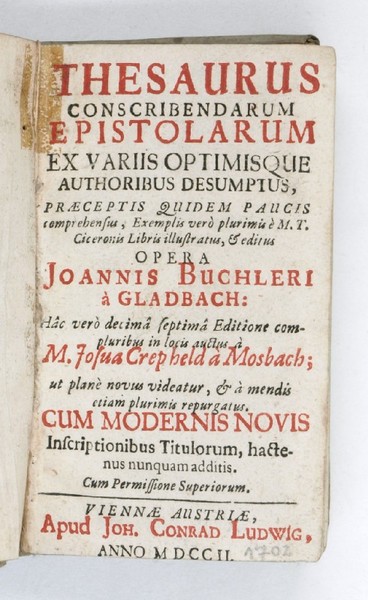 THESAURUS
CONSCRIBENDARUM
EPISTOLARUM
EX VARIIS OPTIMISQUE
AUTHORIBUS DESUMPTUS,
PRÆCEPTIS QUIDEM PAUCIS
comprehensus, Exemplis verò plurimis è M. T.
Ciceronis Libris illustratus, & editus
OPERA
JOANNIS BUCHLERI
à GLADBACH:
Hâc verò decimâ septimâ Editione com-
pluribus in locis auctus à
M. Josua Crepheld à Mosbach;
ut planè novus videatur, & à mendis
etiam plurimis repurgatus.
CUM MODERNIS NOVIS
Inscriptionibus Titulorum, hacte-
nus nunquam additis.
Cum Permissione Superiorum.
VIENNÆ AUSTRIÆ,
Apud JOH. CONRAD LUDWIG,
ANNO MDCCII. 1702